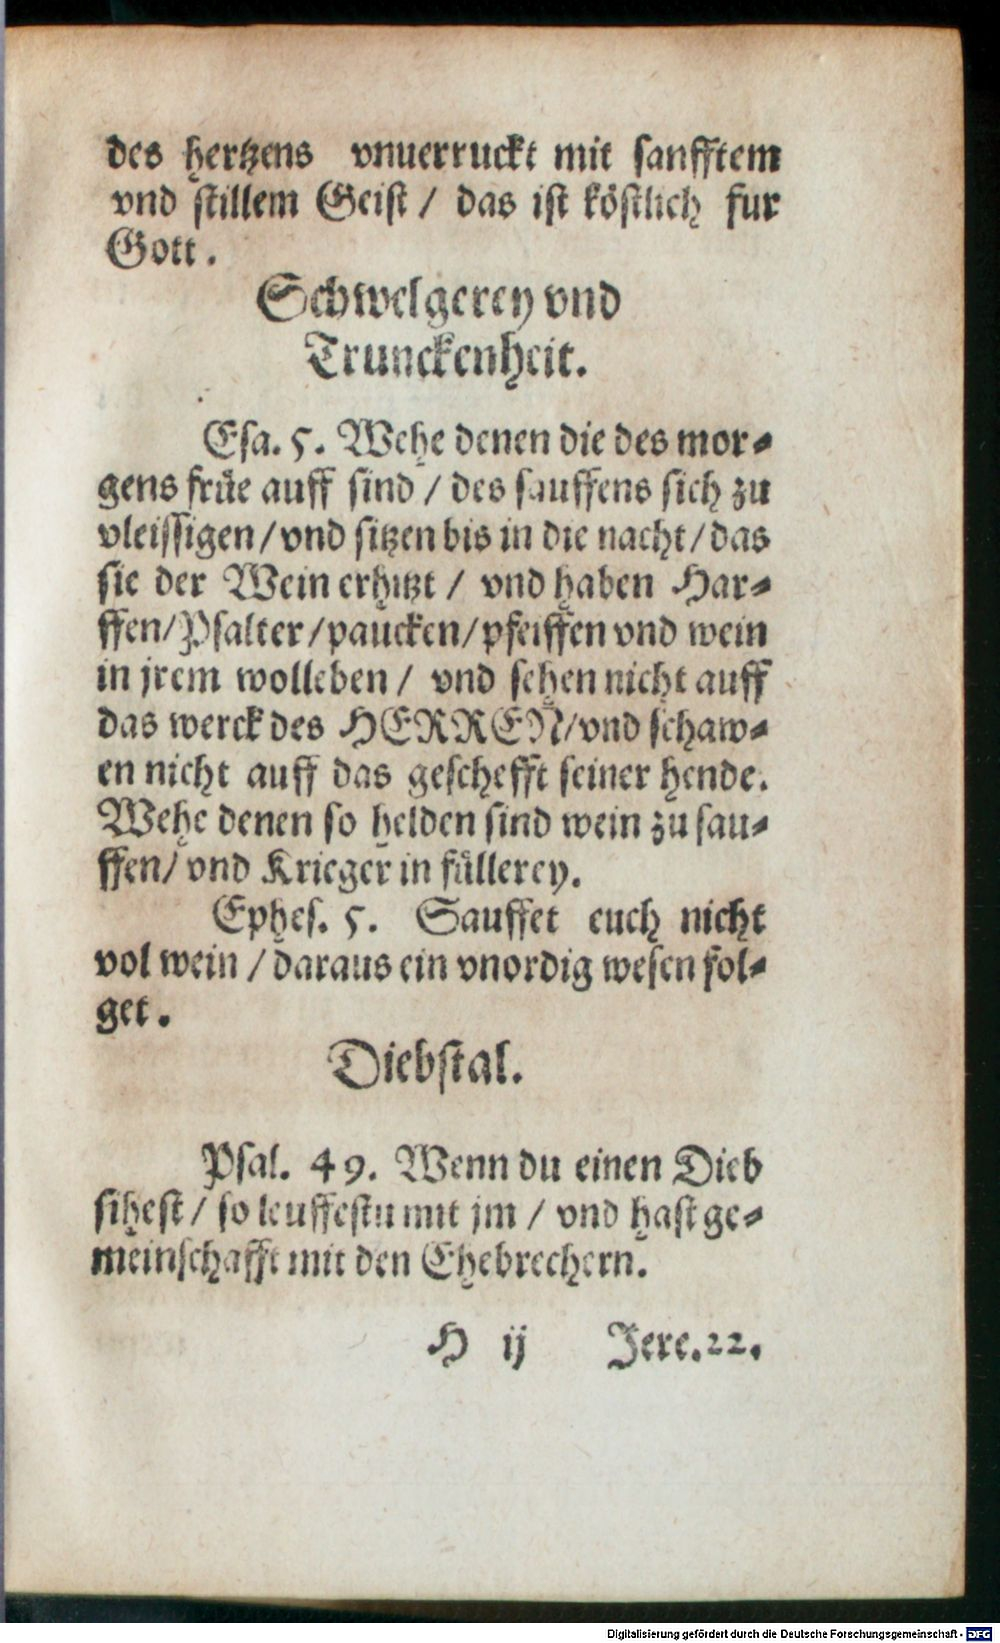 des hertzens vnuerruckt mit sanfftem
vnd stillem Geist / das ist köstlich fur
Gott.
Schwelgerey vnd
Trunckenheit.
Esa. 5. Wehe denen die des mor⸗
gens früe auff sind / des sauffens sich zu
vleissigen / vnd sitzen bis in die nacht / das
sie der Wein erhitzt / vnd haben Har⸗
ffen / Psalter / paucken / pfeiffen vnd wein
in jrem wolleben / vnd sehen nicht auff
das werck des HERREN / vnd schaw⸗
en nicht auff das geschefft seiner hende.
Wehe denen so helden sind wein zu sau⸗
ffen / vnd Krieger in füllerey.
Ephes. 5. Sauffet euch nicht
vol wein / daraus ein vnordig wesen fol⸗
get.
Diebstal.
Psal. 49. Wenn du einen Dieb
sihest / so leuffestu mit jm / vnd hast ge⸗
meinschafft mit den Ehebrechern.
H ij Jere. 22.
Digitalisierung gefördert durch die Deutsche Forschungsgemeinschaft - DFG